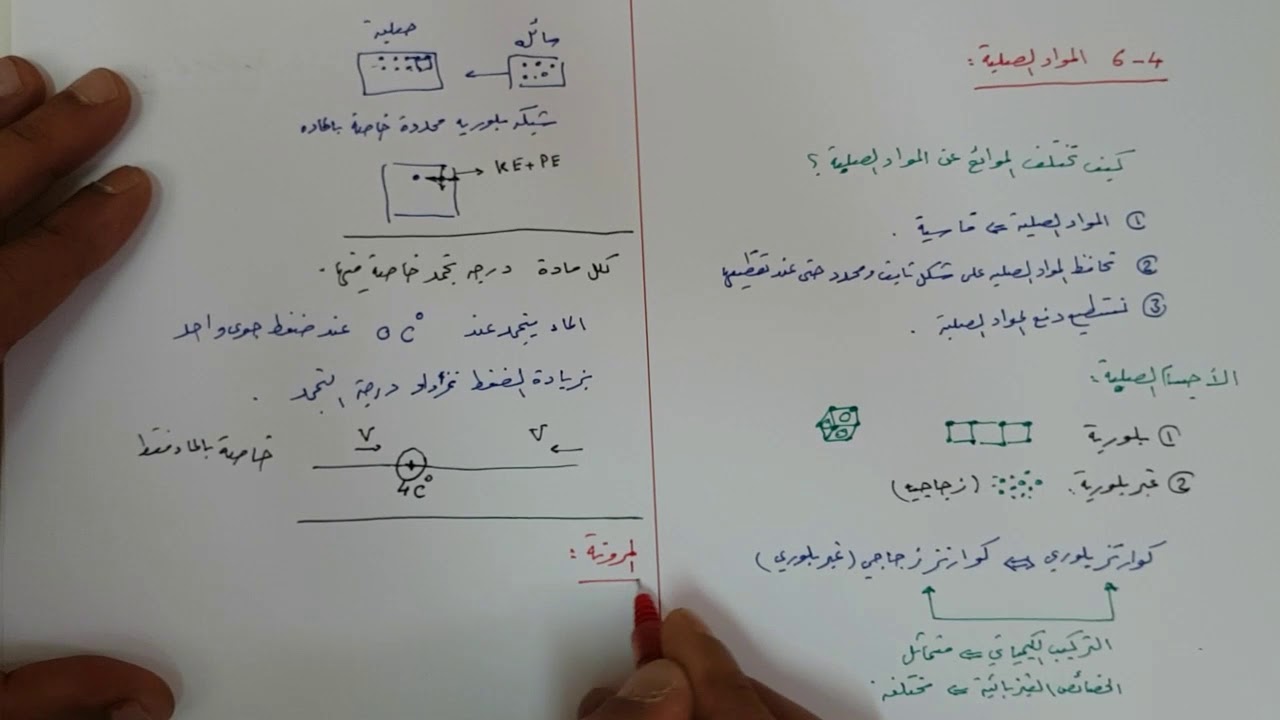 6-4 المواد الصلبة:
كيف تختلف الموائع عن المواد الصلبة؟
① المواد الصلبة ⇐ قاسية.
② تحافظ المواد الصلبة على شكل ثابت ومحدد حتى عند تقطيعها
③ نستطيع دفع المواد الصلبة.
الأجسام الصلبة:
① بلورية
② غير بلورية: (زجاجية)
كوارتز بلوري ⇔ كوارتز زجاجي (غير بلوري)
التركيب الكيميائي ⇐ متماثل
الخصائص الفيزيائية ⇐ مختلفة
سائل صلبة
شبكة بلورية محددة خاصة بالمادة
KE+PE
كل مادة درجة تجمد خاصة فيها.
الماء يتجمد عند 0 C° عند ضغط جوي واحد
بزيادة الضغط تزداد درجة التجمد.
V V
خاصة بالماء فقط
4C°
المرونة: